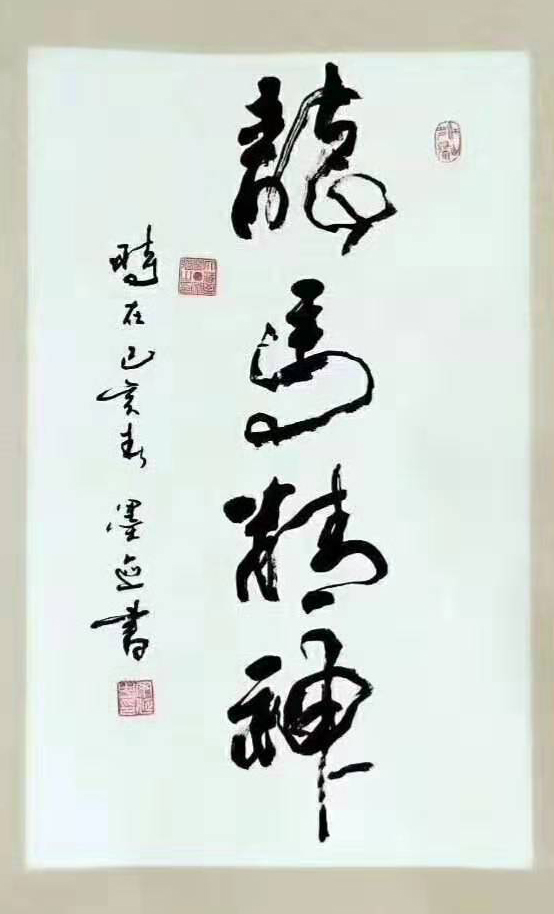 龍馬精神
時在己亥春 墨迹書